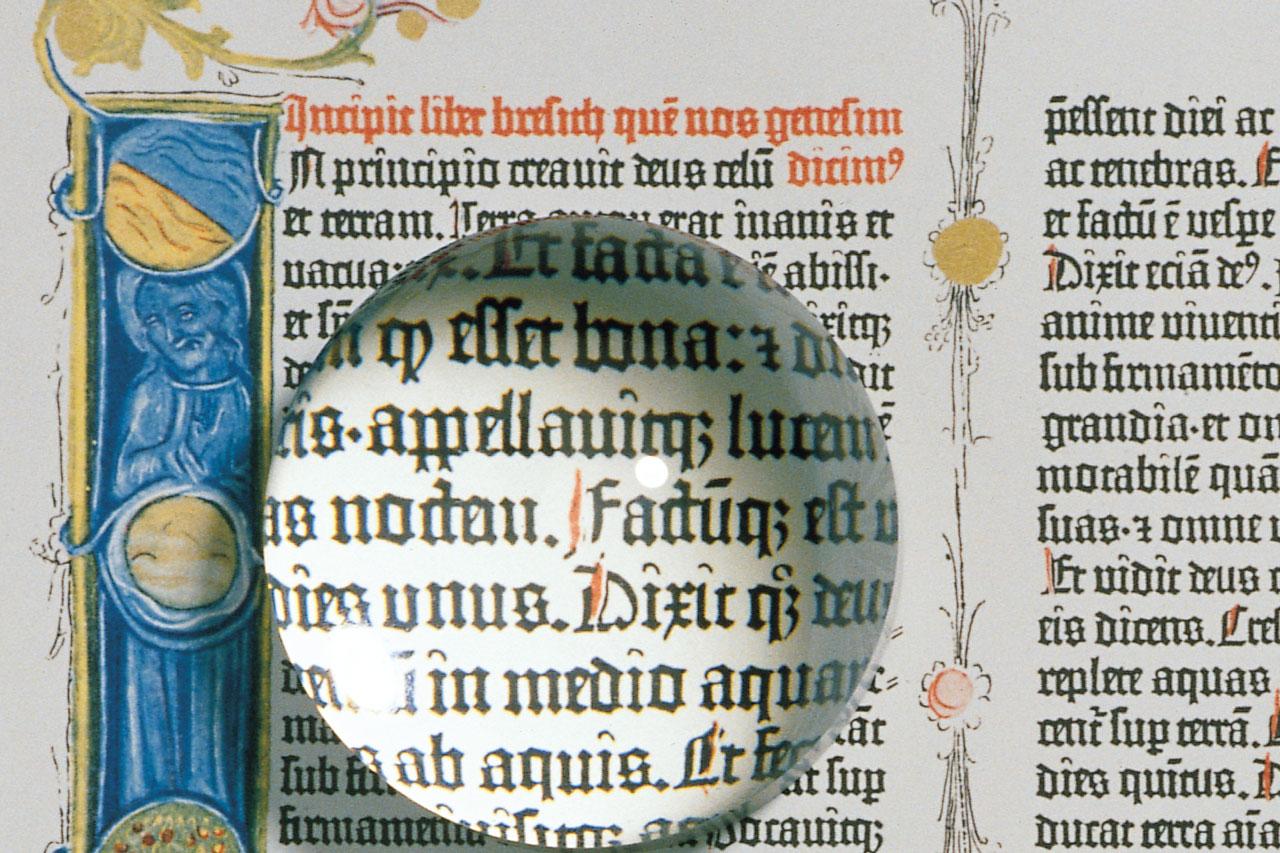 Incipit liber bresith quē nos genesim
N principio creauit deus celū dicimꝰ
et terram. Terra autem erat inanis et
vacua: abissi·
et
Et facta
qꝫ esset bona: ⁊
appellauitqꝫ lucem
as noctem. Factūqꝫ est v
dies vnus. Dixit qꝫ deu
in medio aqua
ab aquis. Et fec
sub sup
firmamen vocauitqꝫ
p̄essent diei ac
ac tenebras.
et factū ē vespe
Dixit eciā deꝰ.
anime viuenti
sub firmamēto
grandia· et om
morabilē quā
suas· ⁊ omne
Et vidit deus
eis dicens. Cres
replete aquas
cent̄ sup terrā.
dies quītus.
ducat terra aīa